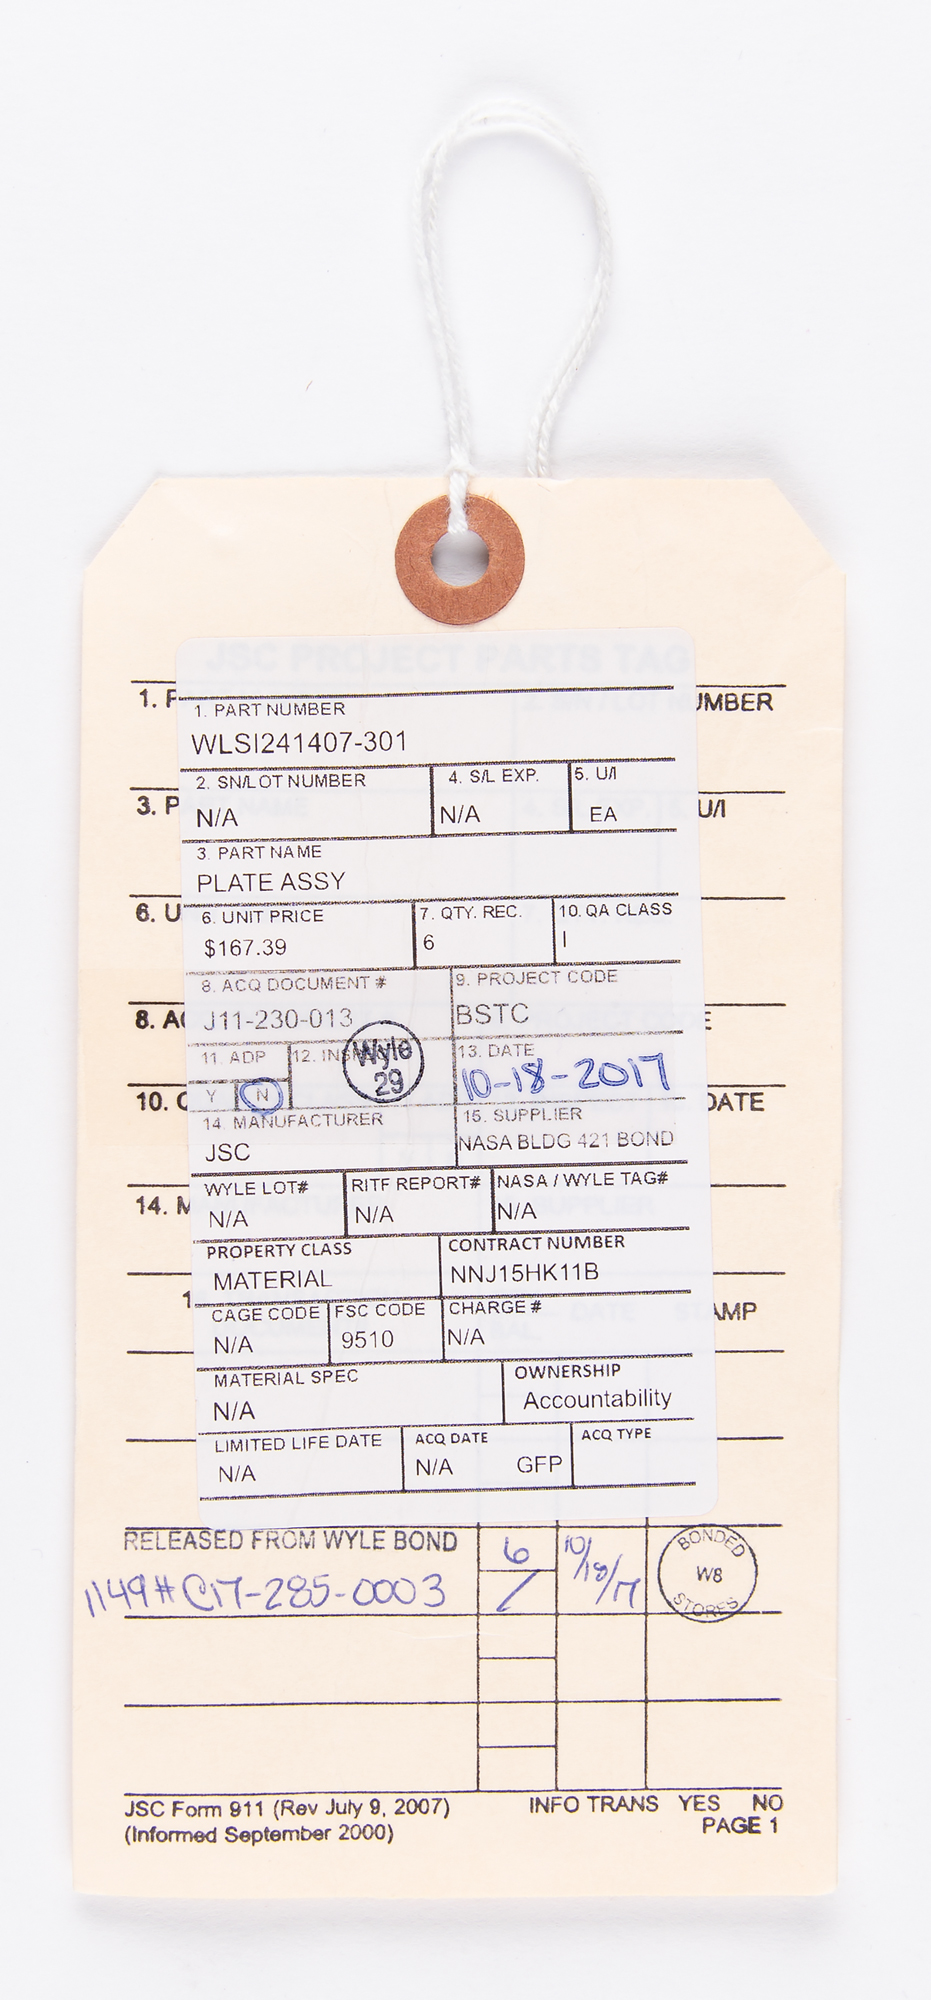 JSC PROJECT PARTS TAG
1. P UMBER
1. PART NUMBER
WLSI241407-301
2. SN/LOT NUMBER 4. S/L EXP. 5. U/I
3. P U/I
N/A N/A EA
3. PART NAME
PLATE ASSY
6. U
6. UNIT PRICE 7. QTY. REC. 10. QA CLASS
$167.39 6 I
8. ACQ DOCUMENT # 9. PROJECT CODE
8. A E
J11-230-013 BSTC
11. ADP 12. INS 13. DATE
Wyle
29
Y N 10-18-2017
10. DATE
14. MANUFACTURER 15. SUPPLIER
JSC NASA BLDG 421 BOND
WYLE LOT# RITF REPORT# NASA / WYLE TAG#
14. M
N/A N/A N/A
PROPERTY CLASS CONTRACT NUMBER
MATERIAL NNJ15HK11B
1 AMP
CAGE CODE FSC CODE CHARGE #
N/A 9510 N/A
MATERIAL SPEC OWNERSHIP
N/A Accountability
LIMITED LIFE DATE ACQ DATE ACQ TYPE
N/A N/A GFP
RELEASED FROM WYLE BOND 6 10/18/17 BONDED
W8
STORES
1149# C17-285-0003
JSC Form 911 (Rev July 9, 2007) INFO TRANS YES NO
(Informed September 2000) PAGE 1